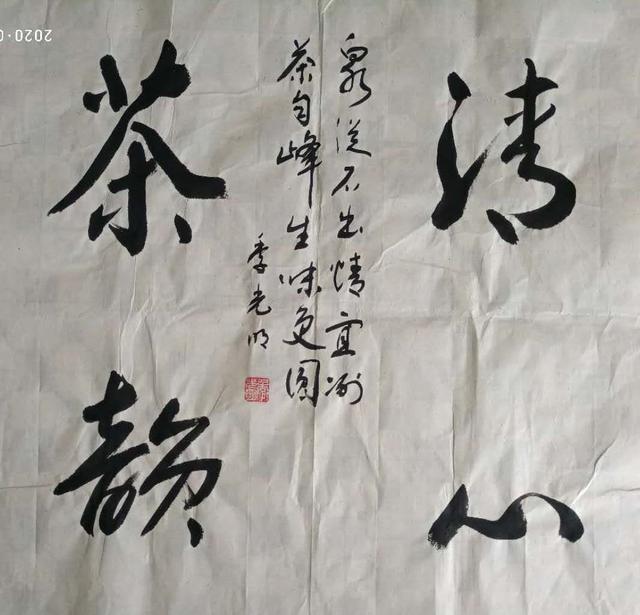 清心
泉從石出情宜冽
茶自峰生味更圆
季光明
茶韵
2020